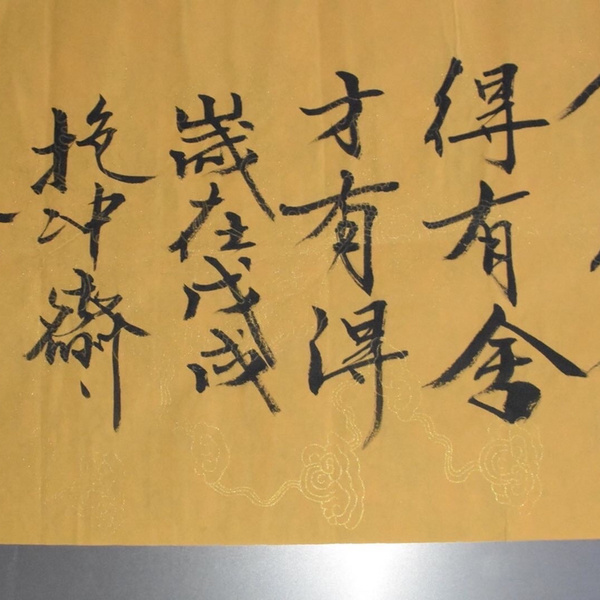 得有舍
才有得
歲在戊戌
抱冲齋